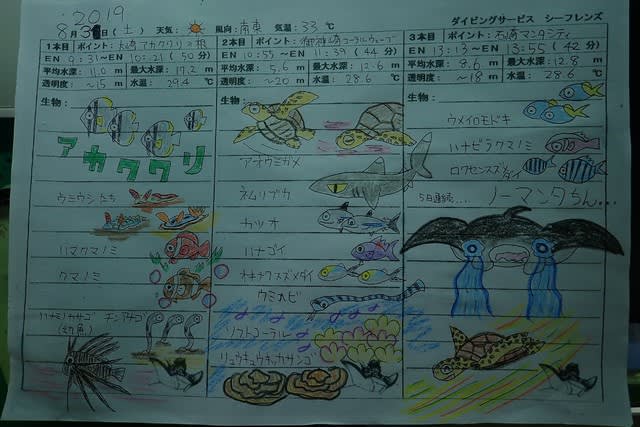 2019
8月31日(土) 天気: 風向: 南東 気温: 33 ℃
ダイビングサービス シーフレンズ
1本目 ポイント: 大崎アカククリの根
EN 9:31 ～ EN 10:21 (50分)
平均水深: 11.0 m 最大水深: 17.2 m
透明度: ~15 m 水温: 29.4 ℃
生物:
アカククリ
ウミウシたち
ハマクマノミ
クマノミ
ハナミノカサゴ (幼魚)
チンアナゴ
2本目 ポイント: 御神崎コーラルウェーブ
EN 10:55 ～ EN 11:39 (44分)
平均水深: 5.6 m 最大水深: 12.6 m
透明度: ~20 m 水温: 28.6 ℃
生物:
アオウミガメ
ネムリブカ
カツオ
ハナゴイ
オキナワスズメダイ
ウミヘビ
ソフトコーラル
リュウキュウキッカサンゴ
3本目 ポイント: 石崎マンタシティ
EN 13:13 ～ EN 13:55 (42分)
平均水深: 8.6 m 最大水深: 12.8 m
透明度: ~18 m 水温: 28.6 ℃
生物:
ウメイロモドキ
ハナビラクマノミ
ロクセンスズメダイ
5日連続... ノーマンタちん...